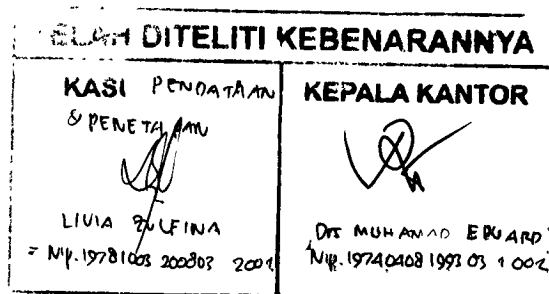 TELAH DITELITI KEBENARANNYA
KASI PENDATAAN
& PENETAPAN
LIVIA ZULFINA
NIP. 19781003 200803 2001
KEPALA KANTOR
DRS MUHAMAD EDUARD
NIP. 19740408 1993 03 1 002